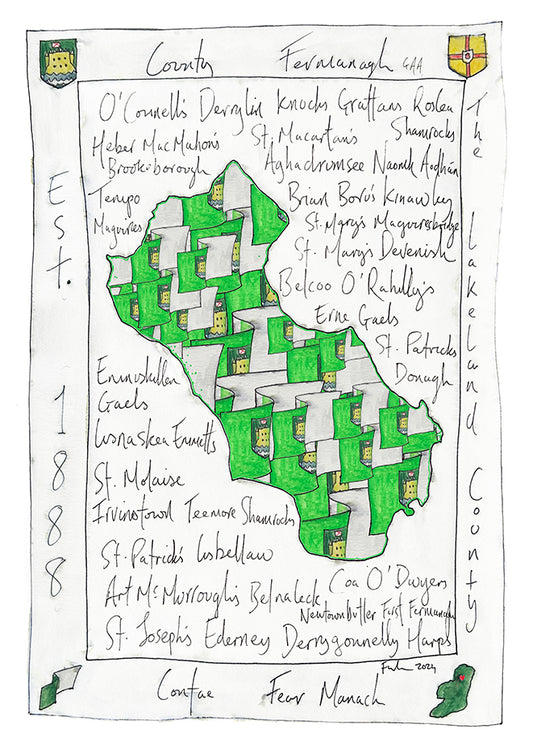 County Fermanagh GAA
O'Connell's Derrylin Knocks Grattans Roslea
Shamrocks
Heber MacMahon's
Brookeborough
St. Macartan's
Aghadrumsee Naomh Aodhán
Tempo
Maguires
Brian Boru's Kinawley
St. Mary's Maguiresbridge
St. Mary's Devenish
Belcoo O'Rahilly's
Erne Gaels
St. Patricks
Donagh
Enniskillen
Gaels
Lisnaskea Emmetts
St. Molaise
Irvinestown Teemore Shamrocks
St. Patrick's Lisbellaw
Coa O'Dwyers
Art McMurrough's Belnaleck
Newtownbutler First Fermanaghs
St. Joseph's Ederney Derrygonnelly Harps
2024
Est. 1888
The Lakeland County
Contae Fear Manach